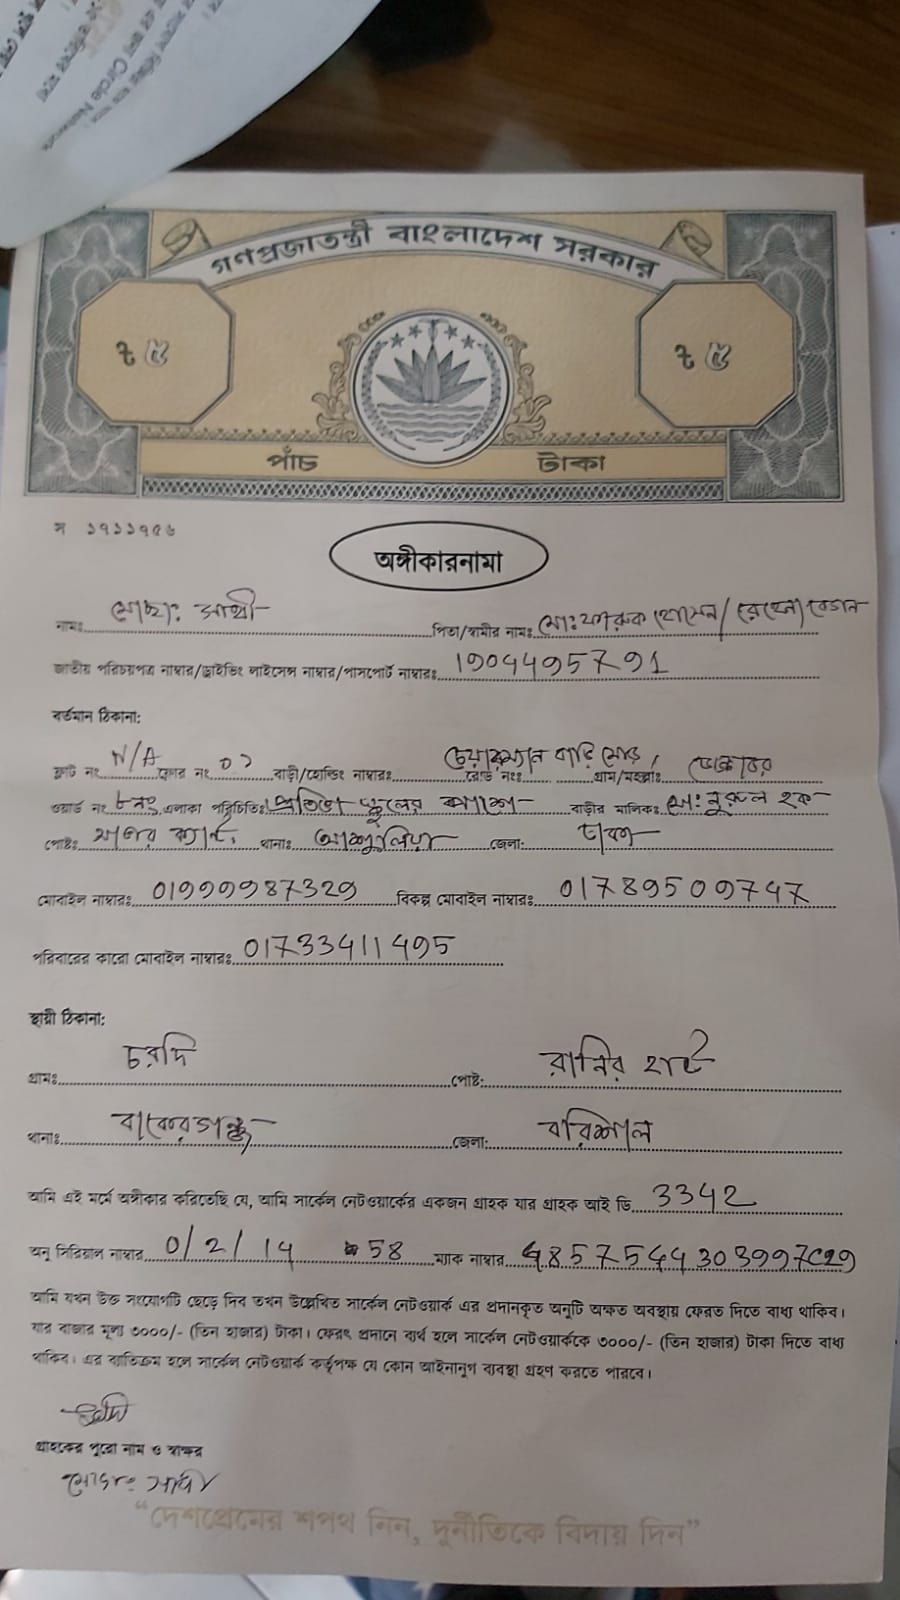 Circle Network
গণপ্রজাতন্ত্রী বাংলাদেশ সরকার
৳ ৫ ৳ ৫
পাঁচ টাকা
স ১৭১১৭৫৬
অঙ্গীকারনামা
নামঃ মোছাঃ সাথী পিতা/স্বামীর নামঃ মোঃ ফারুক হোসেন/রেহেনা বেগম
জাতীয় পরিচয়পত্র নাম্বার/ড্রাইভিং লাইসেন্স নাম্বার/পাসপোর্ট নাম্বারঃ 1904495791
বর্তমান ঠিকানা:
ফ্লাট নং N/A ফ্লোর নং 01 বাড়ী/হোল্ডিং নাম্বারঃ রোড নংঃ চেয়ারম্যান বাড়ি মোড়, গ্রাম/মহল্লাঃ
ওয়ার্ড নং ৮ নং এলাকা পরিচিতিঃ প্রতিভা স্কুলের পাশে বাড়ীর মালিকঃ মোঃ নুরুল হক
পোষ্টঃ সাভার ক্যান্ট, থানাঃ আশুলিয়া জেলা: ঢাকা
মোবাইল নাম্বারঃ 01999987329 বিকল্প মোবাইল নাম্বারঃ 01789509747
পরিবারের কারো মোবাইল নাম্বারঃ 01733411495
স্থায়ী ঠিকানা:
গ্রামঃ চরদি পোষ্ট: রানির হাট
থানাঃ বাকেরগঞ্জ জেলা: বরিশাল
আমি এই মর্মে অঙ্গীকার করিতেছি যে, আমি সার্কেল নেটওয়ার্কের একজন গ্রাহক যার গ্রাহক আই ডি 3342
অনু সিরিয়াল নাম্বার 0/2/14 58 ম্যাক নাম্বার 4857544303997C29
আমি যখন উক্ত সংযোগটি ছেড়ে দিব তখন উল্লেখিত সার্কেল নেটওয়ার্ক এর প্রদানকৃত অনুটি অক্ষত অবস্থায় ফেরত দিতে বাধ্য থাকিব।
যার বাজার মূল্য ৩০০০/- (তিন হাজার) টাকা। ফেরৎ প্রদানে ব্যর্থ হলে সার্কেল নেটওয়ার্ককে ৩০০০/- (তিন হাজার) টাকা দিতে বাধ্য
থাকিব। এর ব্যতিক্রম হলে সার্কেল নেটওয়ার্ক কর্তৃপক্ষ যে কোন আইনানুগ ব্যবস্থা গ্রহণ করতে পারবে।
গ্রাহকের পুরো নাম ও স্বাক্ষর
মোছাঃ সাথী
“দেশপ্রেমের শপথ নিন, দুর্নীতিকে বিদায় দিন”